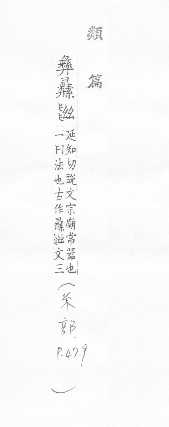 類篇
彝彞𢑱 延知切說文宗廟常器也
一曰法也古作𢑱𢑴文三
(糸部 P.479)